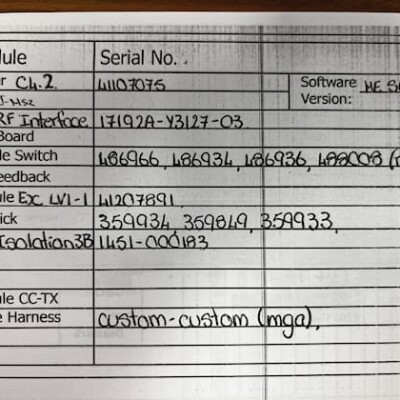 dule Serial No.
er Ch.2 41107075 Software ME S
T-MSZ Version:
RF Interface 17192A-Y3127-03
Board
le Switch 486966, 486934, 486936, 488008 (
eedback
ule Exc LV1-1 41207891
ick 359934, 359849, 359933,
Isolation3B 1451-000183
le CC-TX
e Harness custom-custom (mga),